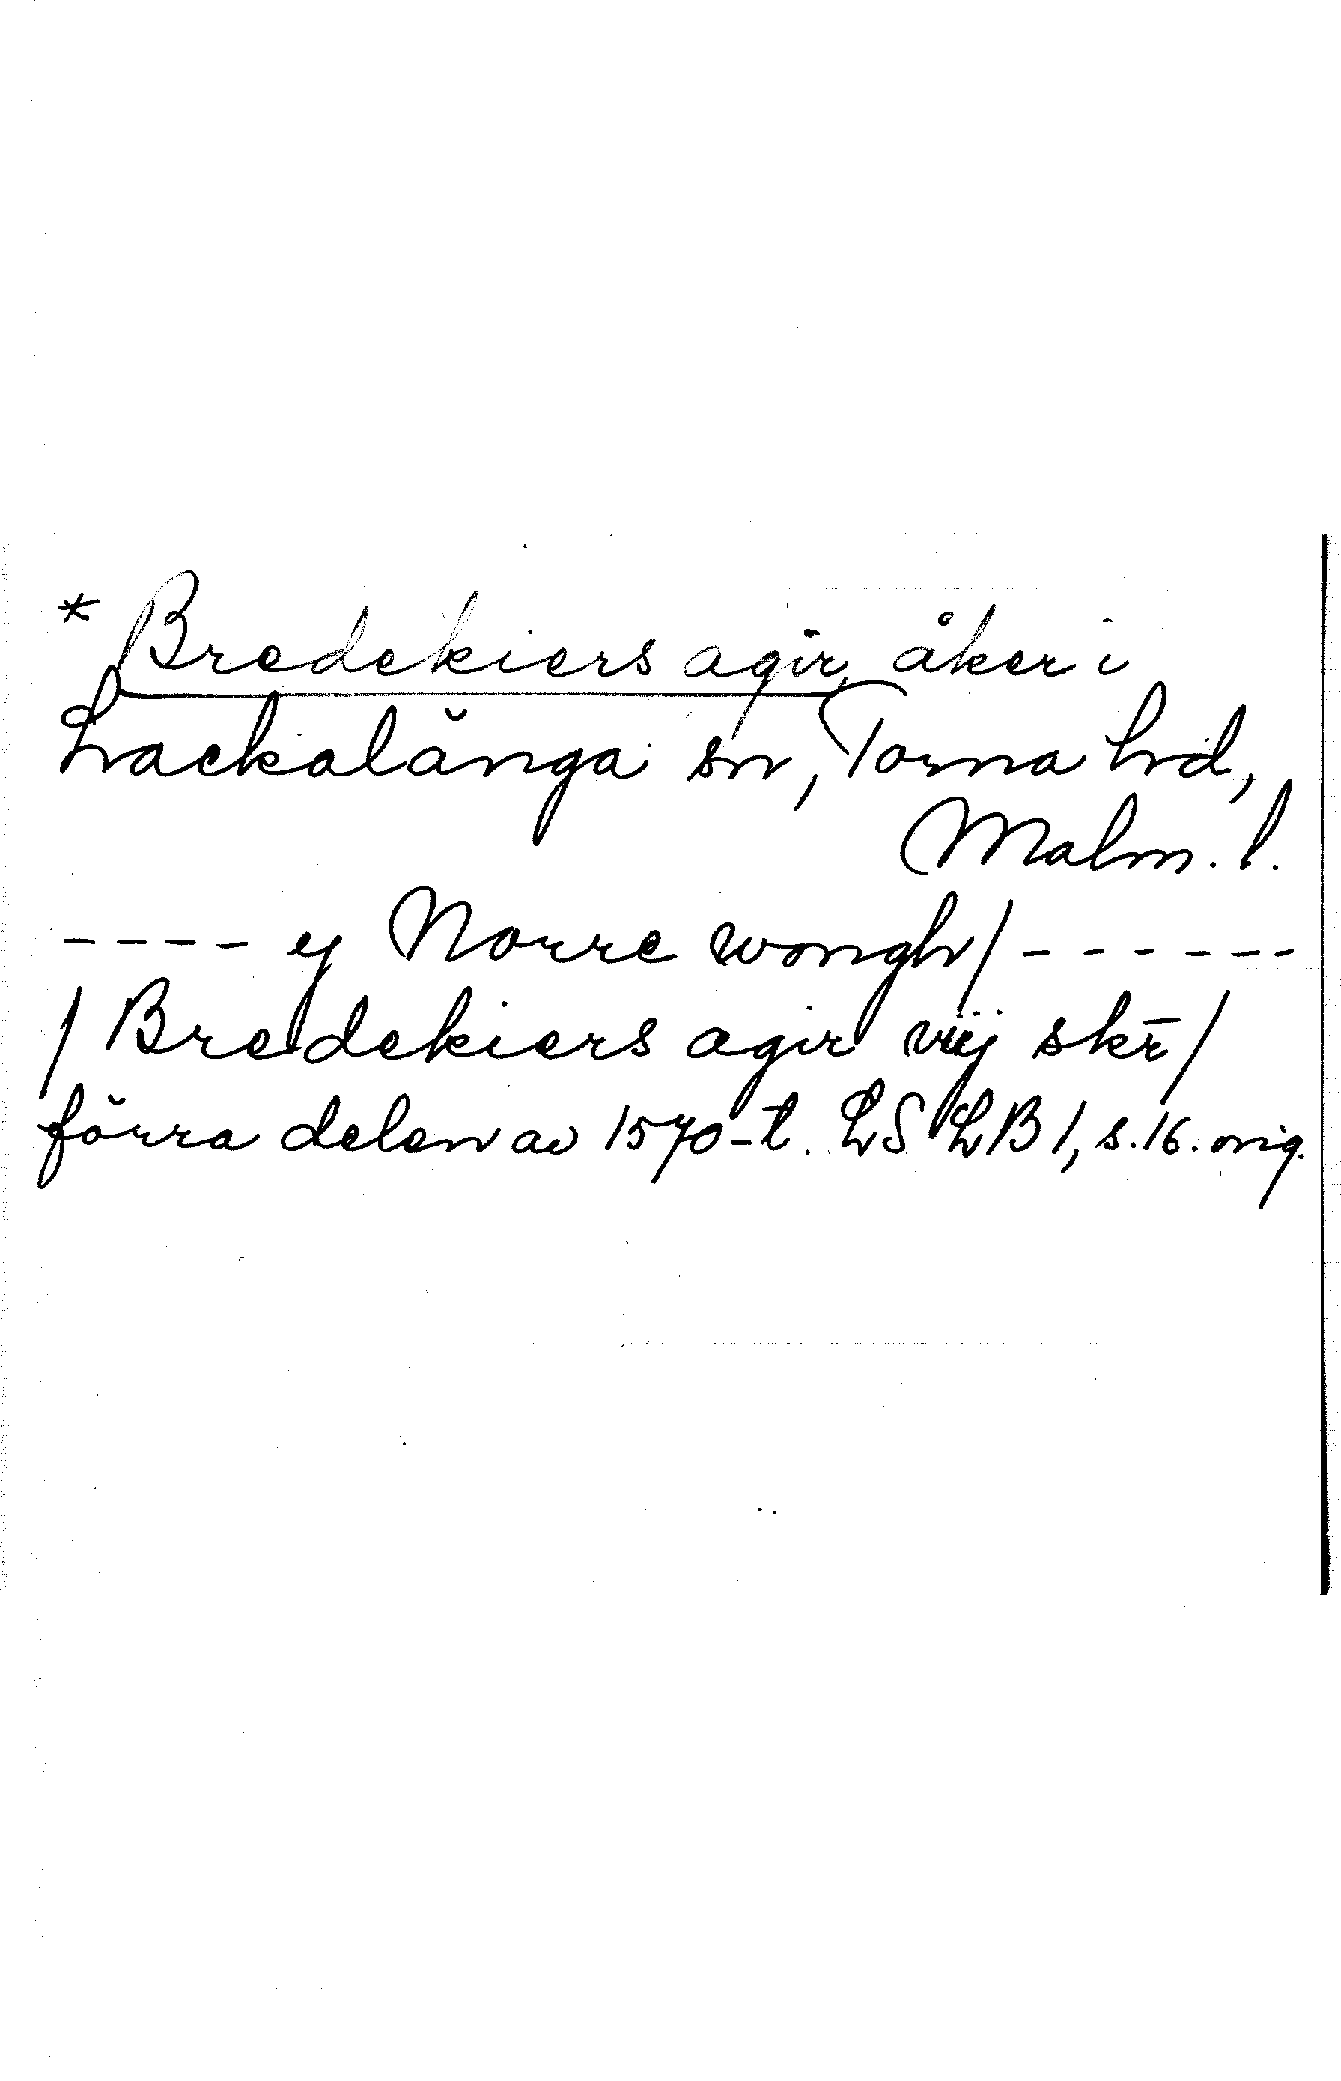 * Bredekiers agir, åker i
Lackalänga sn, Torna hd,
Malm. l.
---- ej Norre wongh/ ------
/ Bredekiers agir viij skr̄ /
förra delen av 1570-t. LSLB 1, s. 16. orig.